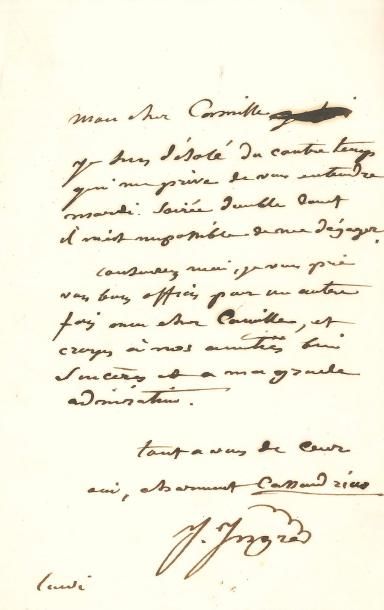 mon cher Camille
je suis désolé du contretemps
qui me prive de vous entendre
mardi. Soirée double dont
il m'est impossible de me dégager
conservez moi, je vous prie
vos bons offices pour une autre
fois mon cher Camille, et
croyez à nos amitiés bien
Sincères et a ma grande
admiration.
tout a vous de Coeur
oui, charmant
J. Ingres
Lundi